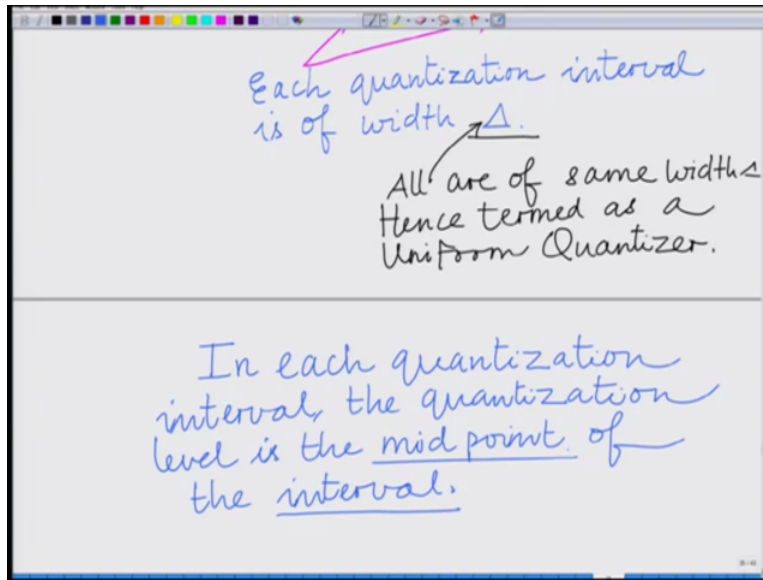 Each quantization interval
is of width Δ.
All are of same width Δ
Hence termed as a
Uniform Quantizer.
In each quantization
interval, the quantization
level is the mid point of
the interval.